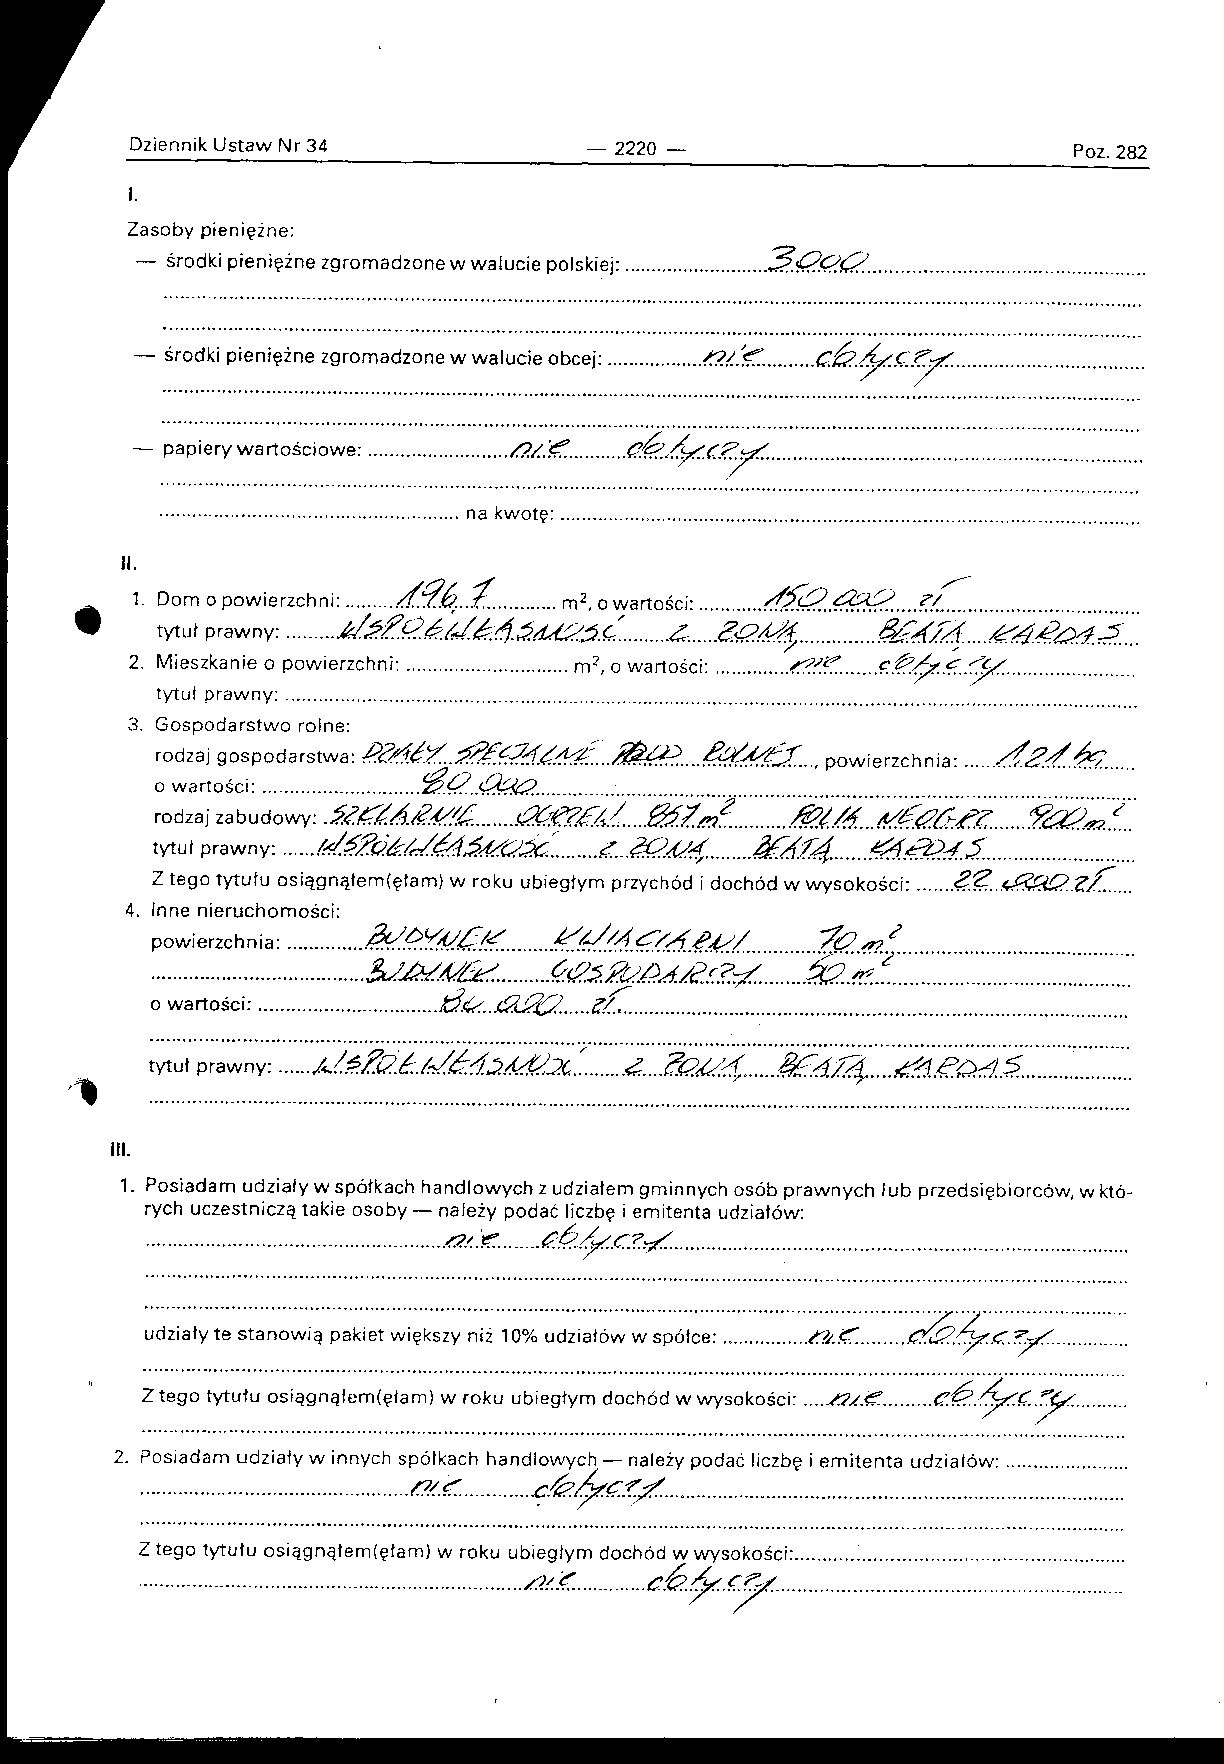 Dziennik Ustaw Nr 34 — 2220 — Poz. 282
I.
Zasoby pieniężne:
— środki pieniężne zgromadzone w walucie polskiej: 3000
— środki pieniężne zgromadzone w walucie obcej: nie dotyczy
— papiery wartościowe: nie dotyczy
na kwotę:
II.
1. Dom o powierzchni: 196,7 m², o wartości: 150 000 zł
tytuł prawny: WSPÓŁWŁASNOŚĆ Z ŻONĄ BEATĄ KARDAS
2. Mieszkanie o powierzchni: m², o wartości: nie dotyczy
tytuł prawny:
3. Gospodarstwo rolne:
rodzaj gospodarstwa: DZIAŁY SPECJALNE PROD ROLNEJ, powierzchnia: 1,21 ha
o wartości: 80 000
rodzaj zabudowy: SZKLARNIE OGRZEW 867 m² FOLIA NEOGRZ 900 m²
tytuł prawny: WSPÓŁWŁASNOŚĆ Z ŻONĄ BEATĄ KARDAS
Z tego tytułu osiągnąłem(ęłam) w roku ubiegłym przychód i dochód w wysokości: 22 000 zł
4. Inne nieruchomości:
powierzchnia: BUDYNEK KWIACIARNI 70 m²
BUDYNEK GOSPODARCZY 50 m²
o wartości: 80 000 zł.
tytuł prawny: WSPÓŁWŁASNOŚĆ Z ŻONĄ BEATĄ KARDAS
III.
1. Posiadam udziały w spółkach handlowych z udziałem gminnych osób prawnych lub przedsiębiorców, w któ-
rych uczestniczą takie osoby — należy podać liczbę i emitenta udziałów:
nie dotyczy
udziały te stanowią pakiet większy niż 10% udziałów w spółce: nie dotyczy
Z tego tytułu osiągnąłem(ęłam) w roku ubiegłym dochód w wysokości: nie dotyczy
2. Posiadam udziały w innych spółkach handlowych — należy podać liczbę i emitenta udziałów:
nie dotyczy
Z tego tytułu osiągnąłem(ęłam) w roku ubiegłym dochód w wysokości:
nie dotyczy